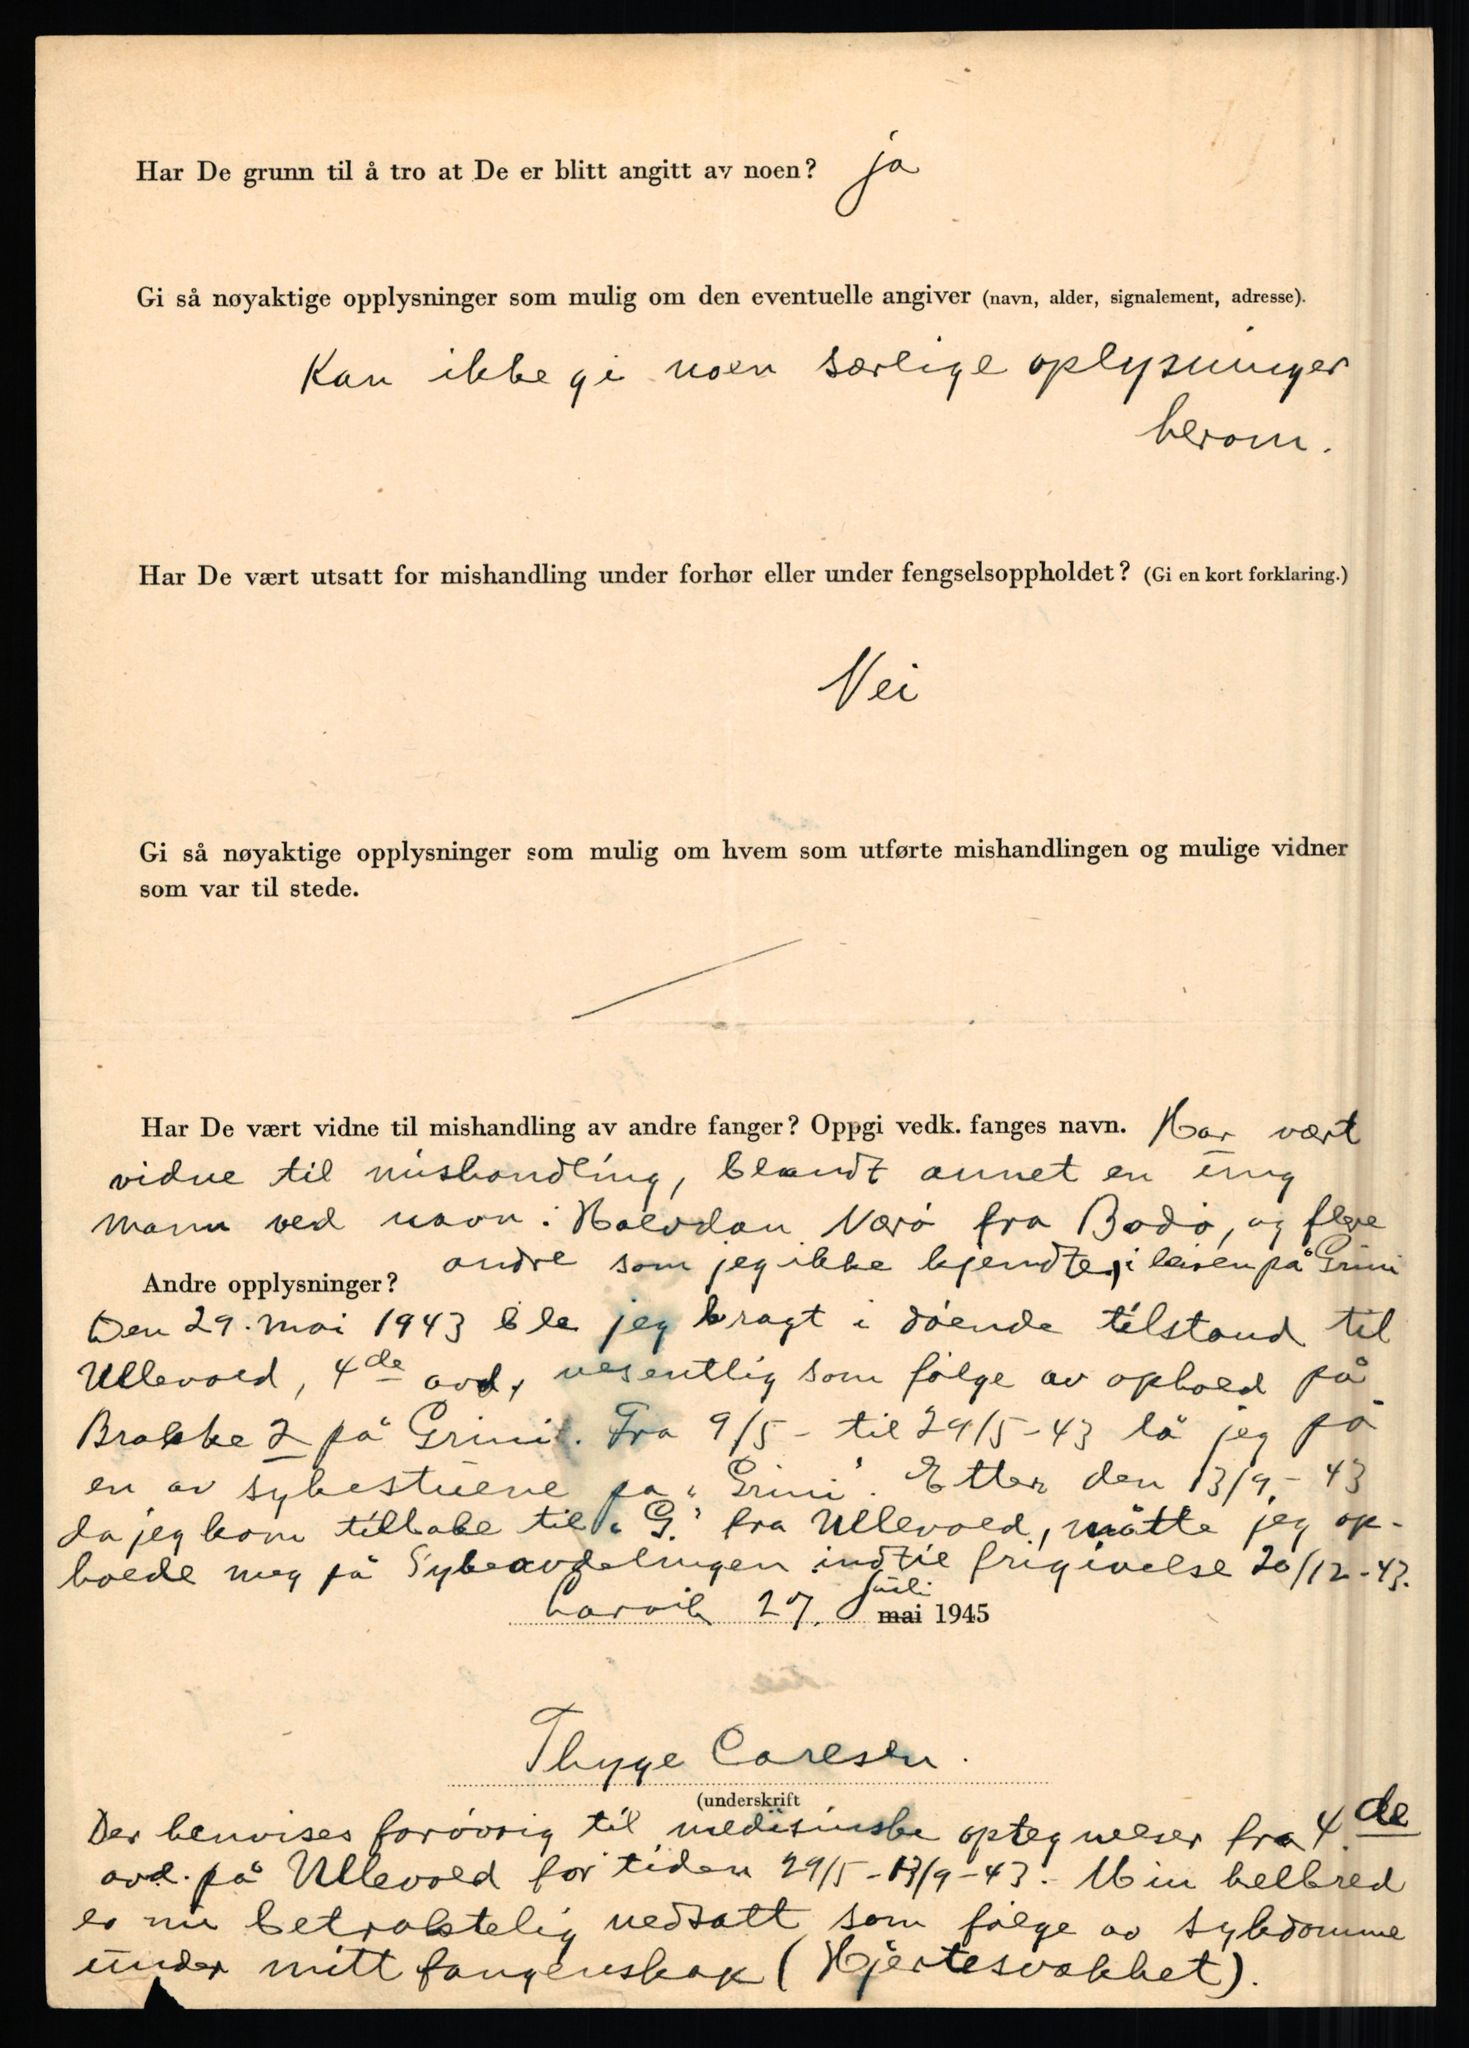 Har De grunn til å tro at De er blitt angitt av noen? ja
Gi så nøyaktige opplysninger som mulig om den eventuelle angiver (navn, alder, signalement, adresse).
Kan ikke gi noen særlige oplysninger
herom.
Har De vært utsatt for mishandling under forhør eller under fengselsoppholdet? (Gi en kort forklaring.)
Nei
Gi så nøyaktige opplysninger som mulig om hvem som utførte mishandlingen og mulige vidner
som var til stede.
Har De vært vidne til mishandling av andre fanger? Oppgi vedk. fanges navn. Har vært
vidne til mishandling, blandt annet en ung
mann ved navn: Halvdan Værø fra Bodø, og flere
andre som jeg ikke kjendte, i leiren på Grini
Andre opplysninger?
Den 29. mai 1943 ble jeg bragt i døende tilstand til
Ullevold, 4de avd, vesentlig som følge av ophold på
Brakke 2 på Grini. Fra 9/5 - til 29/5-43 lå jeg på
en av sykestuene på "Grini". Etter den 13/9.-43
da jeg kom tilbake til "G." fra Ullevold, måtte jeg op-
holde meg på Sykeavdelingen indtil frigivelse 20/12-43.
Larvik 27. juli mai 1945
Thyge Carlsen.
(underskrift
Der henvises forøvrig til medisinske optegnelser fra 4de
avd. på Ullevold for tiden 29/5-13/9-43. Min helbred
er nu betraktelig nedsatt som følge av sykdomme
under mitt fangenskap (Hjertesvakhet).